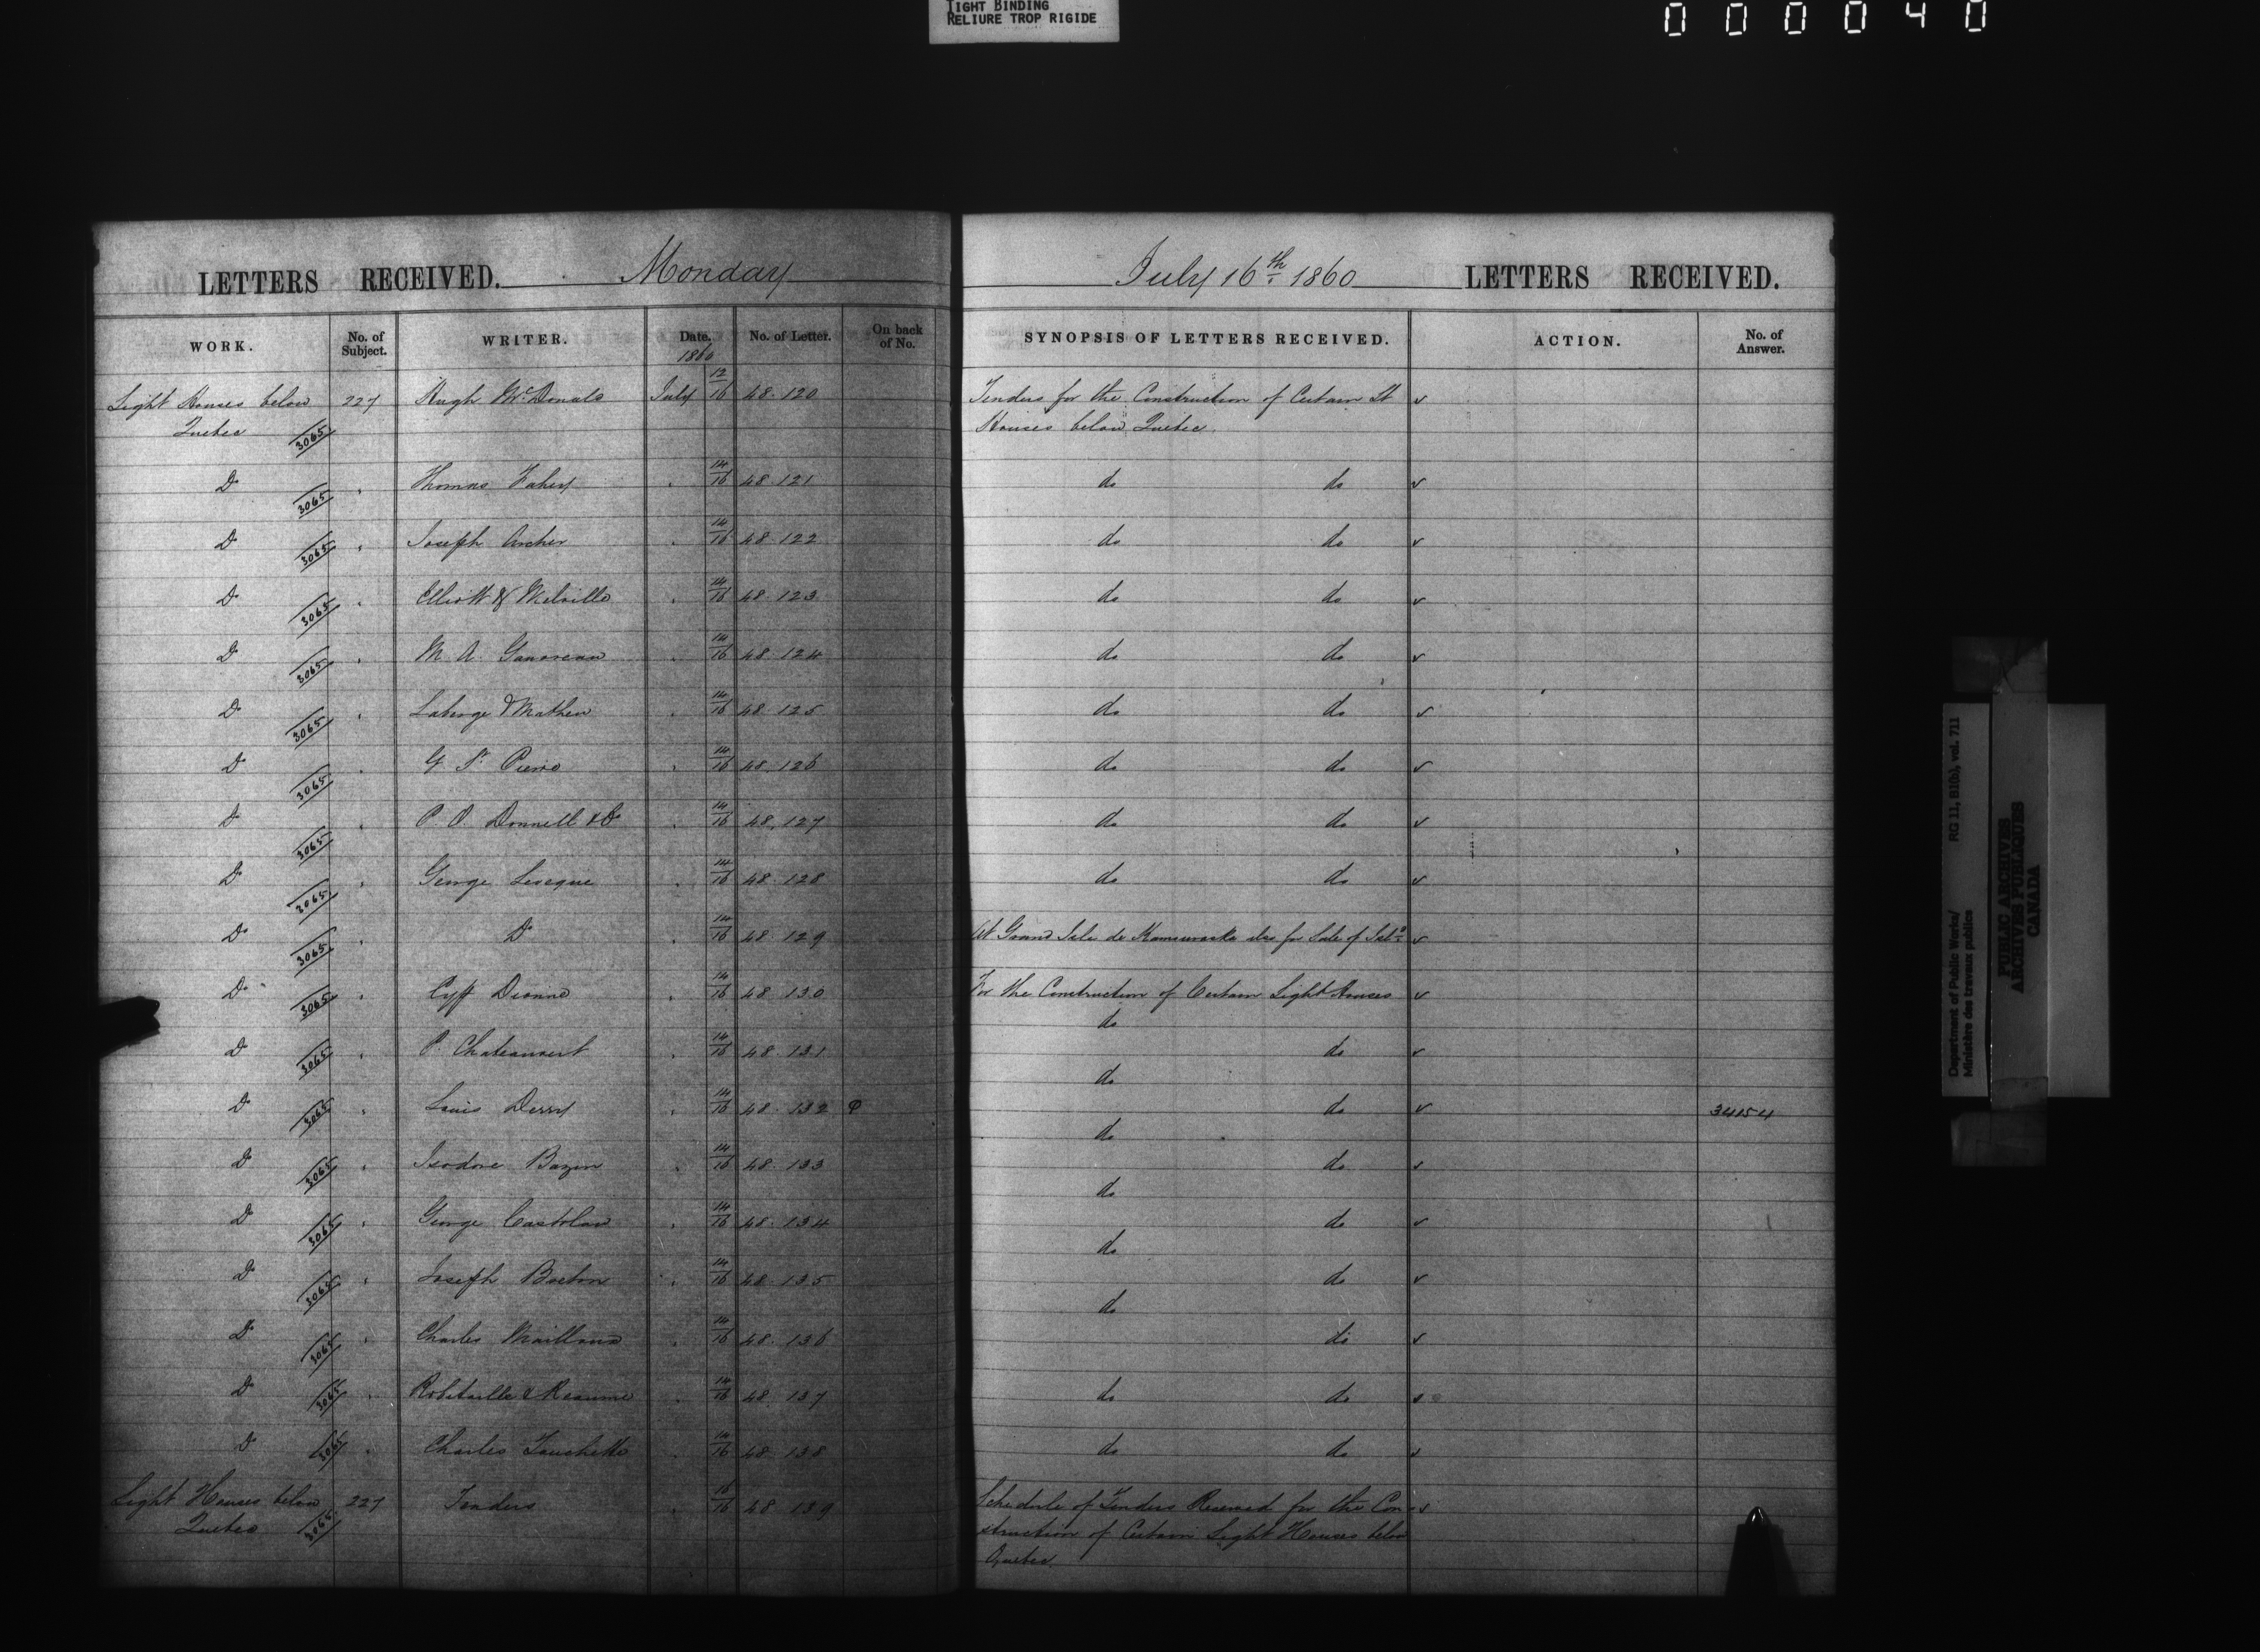 TIGHT BINDING
RELIURE TROP RIGIDE
000040
LETTERS RECEIVED. Monday July 16th 1860 LETTERS RECEIVED.
WORK. No. of Subject. WRITER. Date. 1860 No. of Letter. On back of No. SYNOPSIS OF LETTERS RECEIVED. ACTION. No. of Answer.
Light Houses below 227 Hugh McDonald July 12/16 48.120 Tenders for the Construction of Certain Lt v
Quebec 3065 Houses below Quebec.
Do 3065 " Thomas Fahey " 14/16 48.121 do do v
Do 3065 " Joseph Archer " 14/16 48.122 do do v
Do 3065 " Elliott & Melville " 14/16 48.123 do do v
Do 3065 " M. A. " 14/16 48.124 do do v
Do 3065 " Laberge & Mathieu " 14/16 48.125 do do v
Do 3065 " G St Pierre " 14/16 48.126 do do v
Do 3065 " P. O. Donnell & Co " 14/16 48.127 do do v
Do 3065 " George Leveque " 14/16 48.128 do do v
Do 3065 " Do " 14/16 48.129 At Grand Isle de Kamouraska also for Sale of v
Do 3065 " Dionne " 14/16 48.130 For the Construction of Certain Light Houses v
do
Do 3065 " P. Chateauvert " 14/16 48.131 do v
do
Do 3065 " Louis Derry " 14/16 48.132 do v 34154
do
Do 3065 " Isodore Bazin " 14/16 48.133 do v
do
Do 3065 " George " 14/16 48.134 do v
do
Do 3065 " Joseph Breton " 14/16 48.135 do v
do
Do 3065 " Charles Mailland " 14/16 48.136 do v
Do 3065 " Robitaille & Reaume " 14/16 48.137 do do v
Do 3065 " Charles Touchette " 14/16 48.138 do do v
Light Houses below 227 Tenders " 16/16 48.139 Schedule of Tenders Received for the Con- v
Quebec 3065 struction of Certain Light Houses below
Quebec.
Department of Public Works/ RG 11, B1(b), vol. 711
Ministère des travaux publics
PUBLIC ARCHIVES
ARCHIVES PUBLIQUES
CANADA